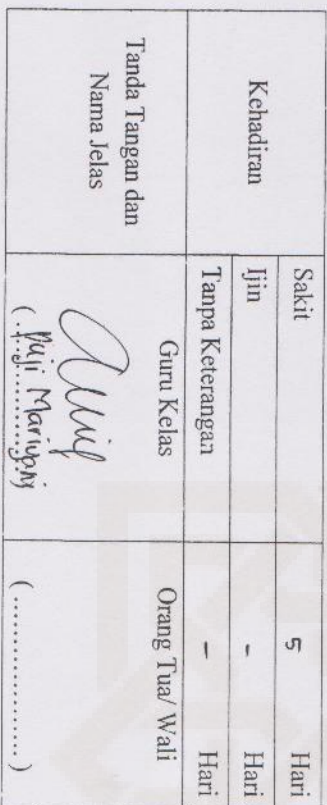 Kehadiran
Sakit 5 Hari
Ijin - Hari
Tanpa Keterangan - Hari
Tanda Tangan dan
Nama Jelas
Guru Kelas
(Puji Mariyani)
Orang Tua/ Wali
(....................)